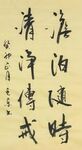 澹泊隨時
清淨傳戒
癸卯正月